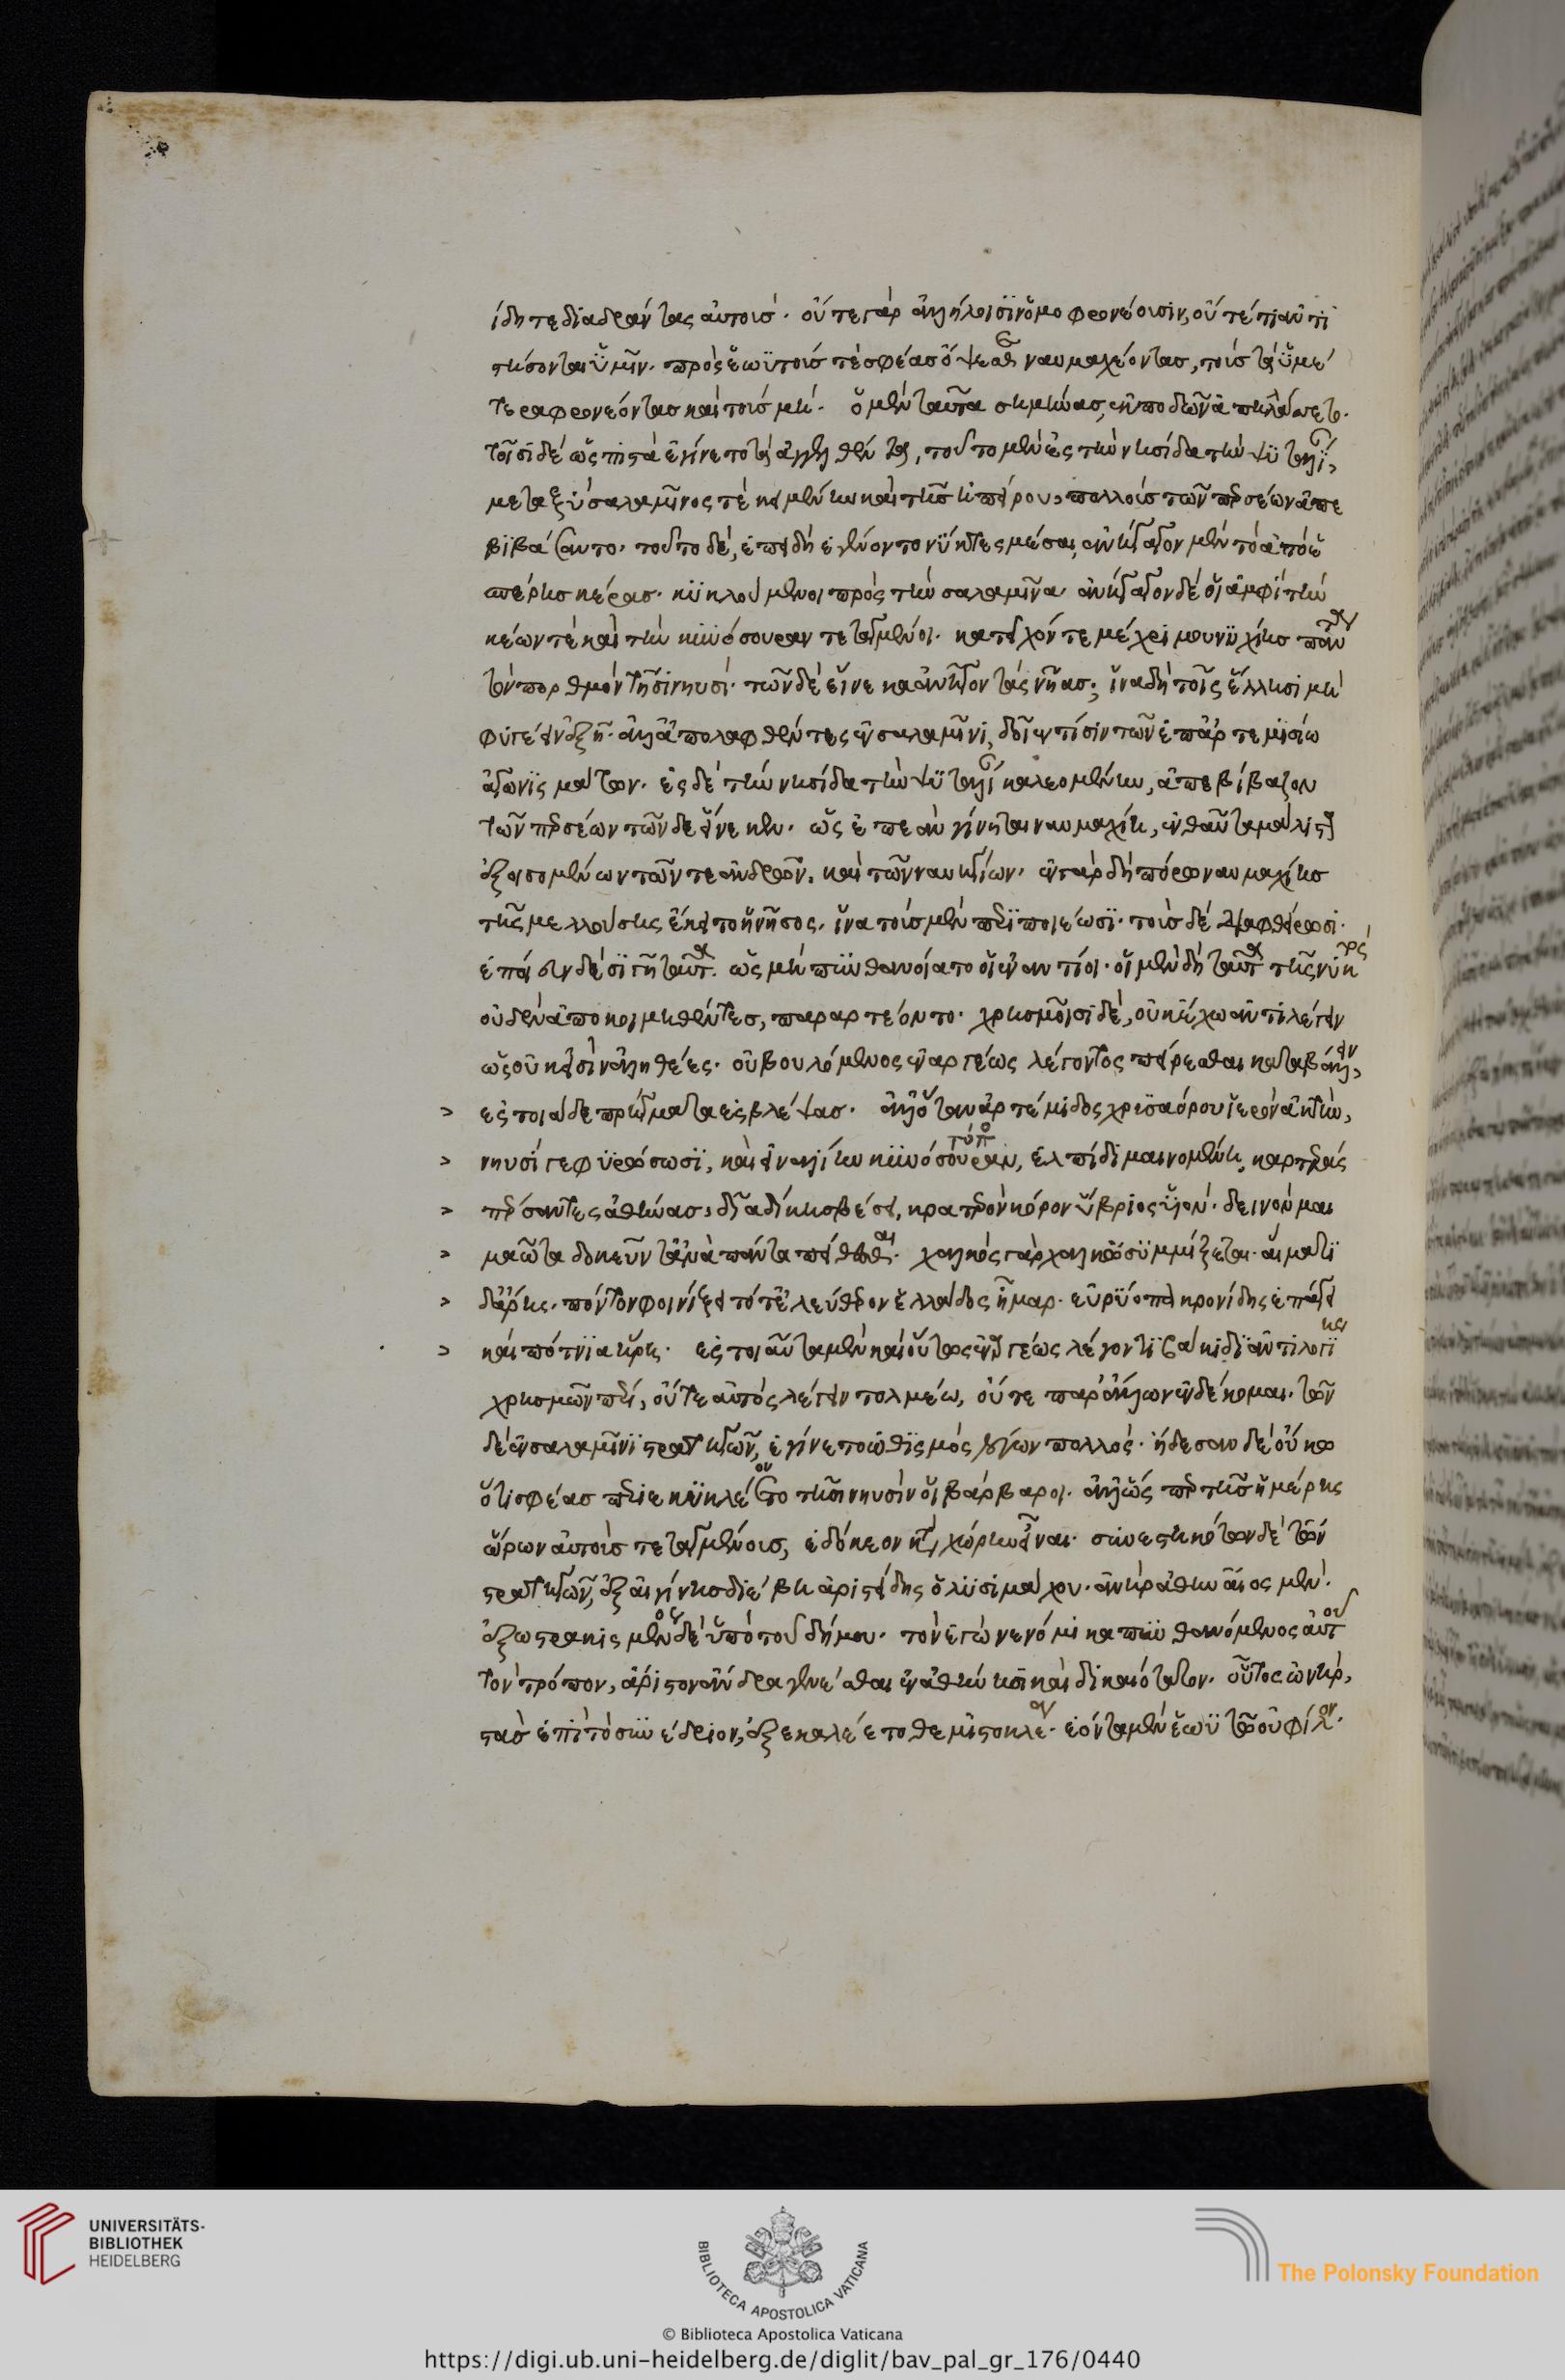 ίδητε διαδράντας αὐτούσ. οὔτε γὰρ ἀλλήλοισιν ὁμοφρονέουσιν, οὔτέ τι ἀντι
στήσονται ὑμῖν. πρὸς ἑωυτούσ τέ σφέασ ὄψεσθε ναυμαχέοντασ, τοὺσ τὰ ὑμέ
τερα φρονέοντασ καὶ τοὺσ μή. ὁ μὲν ταῦτα σημήνασ, ἐκποδὼν ἀπηλλάσσετο.
τοῖσι δὲ ὡς πιστὰ ἐγίνετο τὰ ἀγγελθέντα, τοῦτο μὲν ἐς τὴν νησίδα τὴν ψυτταλί,
μεταξὺ σαλαμῖνος τὲ κειμένην καὶ τῆσ ἠπείρου, πολλοὺσ τῶν περσέων ἀπε
βιβάσαντο. τοῦτο δὲ, ἐπειδὴ ἐγένοντο νύκτες μέσαι, ἀνῆγον μὲν τὸ ἀπὸ ἑ
σπέρησ κέρασ. κυκλούμενοι πρὸς τὴν σαλαμῖνα. ἀνῆγον δὲ οἱ ἀμφὶ τὴν
κέων τὲ καὶ τὴν κυνόσουραν τεταγμένοι. κατεῖχόν τε μέχρι μουνυχίησ πάντα
τὸν πορθμὸν τῆσι νηυσί. τῶνδε εἵνεκα ἀνῆγον τὰς νῆασ, ἵνα δὴ τοῖς ἕλλησι μὴ
φυγέειν ἐξῆ. ἀλλ' ἀπολαφθέντες ἐν σαλαμῖνι, δοῖεν τίσιν τῶν ἐπ' ἀρτεμισίω
ἀγωνισμάτων. ἐς δὲ τὴν νησίδα τὴν ψυτταλί καλεομένην, ἀπεβίβαζον
τῶν περσέων τῶνδε εἵνεκεν. ὡς ἐπεὰν γίνηται ναυμαχίη, ἐνθαῦτα μάλιστα
ἐξοισομένων τῶν τε ἀνδρῶν, καὶ τῶν ναυηγίων. ἐν γὰρ δὴ πόρω ναυμαχίησ
τῆς μελλούσης ἔκειτο ἡ νῆσος. ἵνα τοὺσ μὲν περιποιέωσι. τοὺσ δὲ διαφθείρωσι.
ἐποίευν δὲ σιγῆ ταῦτα. ὡς μὴ πυνθανοίατο οἱ ἐναντίοι. οἱ μὲν δὴ ταῦτα τῆς νυκτός
οὐδὲν ἀποκοιμηθέντεσ, παραρτέοντο. χρησμοῖσι δὲ, οὐκ ἔχω ἀντιλέγειν
ὡς οὐκ εἰσὶν ἀληθέες. οὐ βουλόμενος ἐναργέως λέγοντας πειρέεσθαι καταβάλλειν,
> ἐς τοιάδε πρήγματα ἐσβλέψασ. ἀλλ' ὅταν ἀρτέμιδος χρυσαόρου ἱερὸν ἀκτὴν,
> νηυσὶ γεφυρώσωσι, καὶ εἰναλίην κυνόσουραν, ἐλπίδι μαινομένη, λιπαρὰς
> πέρσαντες ἀθήνασ, δῖα δίκη σβέσει, κρατερὸν κόρον ὕβριος υἱόν. δεινὸν μαι
> μώοντα δοκεῦντ' ἀνὰ πάντα πείθεσθαι. χαλκὸς γὰρ χαλκῶ συμμίξεται. αἵματι
> δ' ἄρης. πόντον φοινίξει τότ' ἐλεύθερον ἑλλάδος ἦμαρ. εὐρύοπα κρονίδης ἐπάγει
> καὶ πότνια νίκη. ἐς τοιαῦτα μὲν καὶ οὕτως ἐναργέως λέγοντι βάκιδι ἀντιλογί
χρησμῶν περὶ, οὔτε αὐτὸς λέγειν τολμέω, οὔτε παρ' ἄλλων ἐνδέκομαι. τῶν
δὲ ἐν σαλαμῖνι στρατηγῶν, ἐγίνετο ὠθισμὸς λόγων πολλός. ἤδεσαν δὲ οὔκω
ὅτι σφέασ περιεκυκλέοντο τῆσι νηυσὶν οἱ βάρβαροι. ἀλλ' ὥσπερ τῆσ ἡμέρης
ὥρων αὐτοὺσ τεταγμένουσ, ἐδόκεον κατὰ χώρην εἶναι. συνεστηκότων δὲ τῶν
στρατηγῶν, ἐξ αἰγίνησ διέβη ἀριστείδης ὁ λυσιμάχου. ἀνὴρ ἀθηναῖος μὲν.
ἐξωστρακισμένος δὲ ὑπὸ τοῦ δήμου. τὸν ἐγὼ νενόμικα πυνθανόμενος αὐτοῦ
τὸν τρόπον, ἄριστον ἄνδρα γενέσθαι ἐν ἀθήνησι καὶ δικαιότατον. οὗτος ὡνὴρ,
στὰσ ἐπὶ τὸ συνέδριον, ἐξεκαλέετο θεμιστοκλέα. ἐόντα μὲν ἑωυτῶ οὐ φίλον.
UNIVERSITÄTS-
BIBLIOTHEK
HEIDELBERG
BIBLIOTECA APOSTOLICA VATICANA
The Polonsky Foundation
© Biblioteca Apostolica Vaticana
https://digi.ub.uni-heidelberg.de/diglit/bav_pal_gr_176/0440